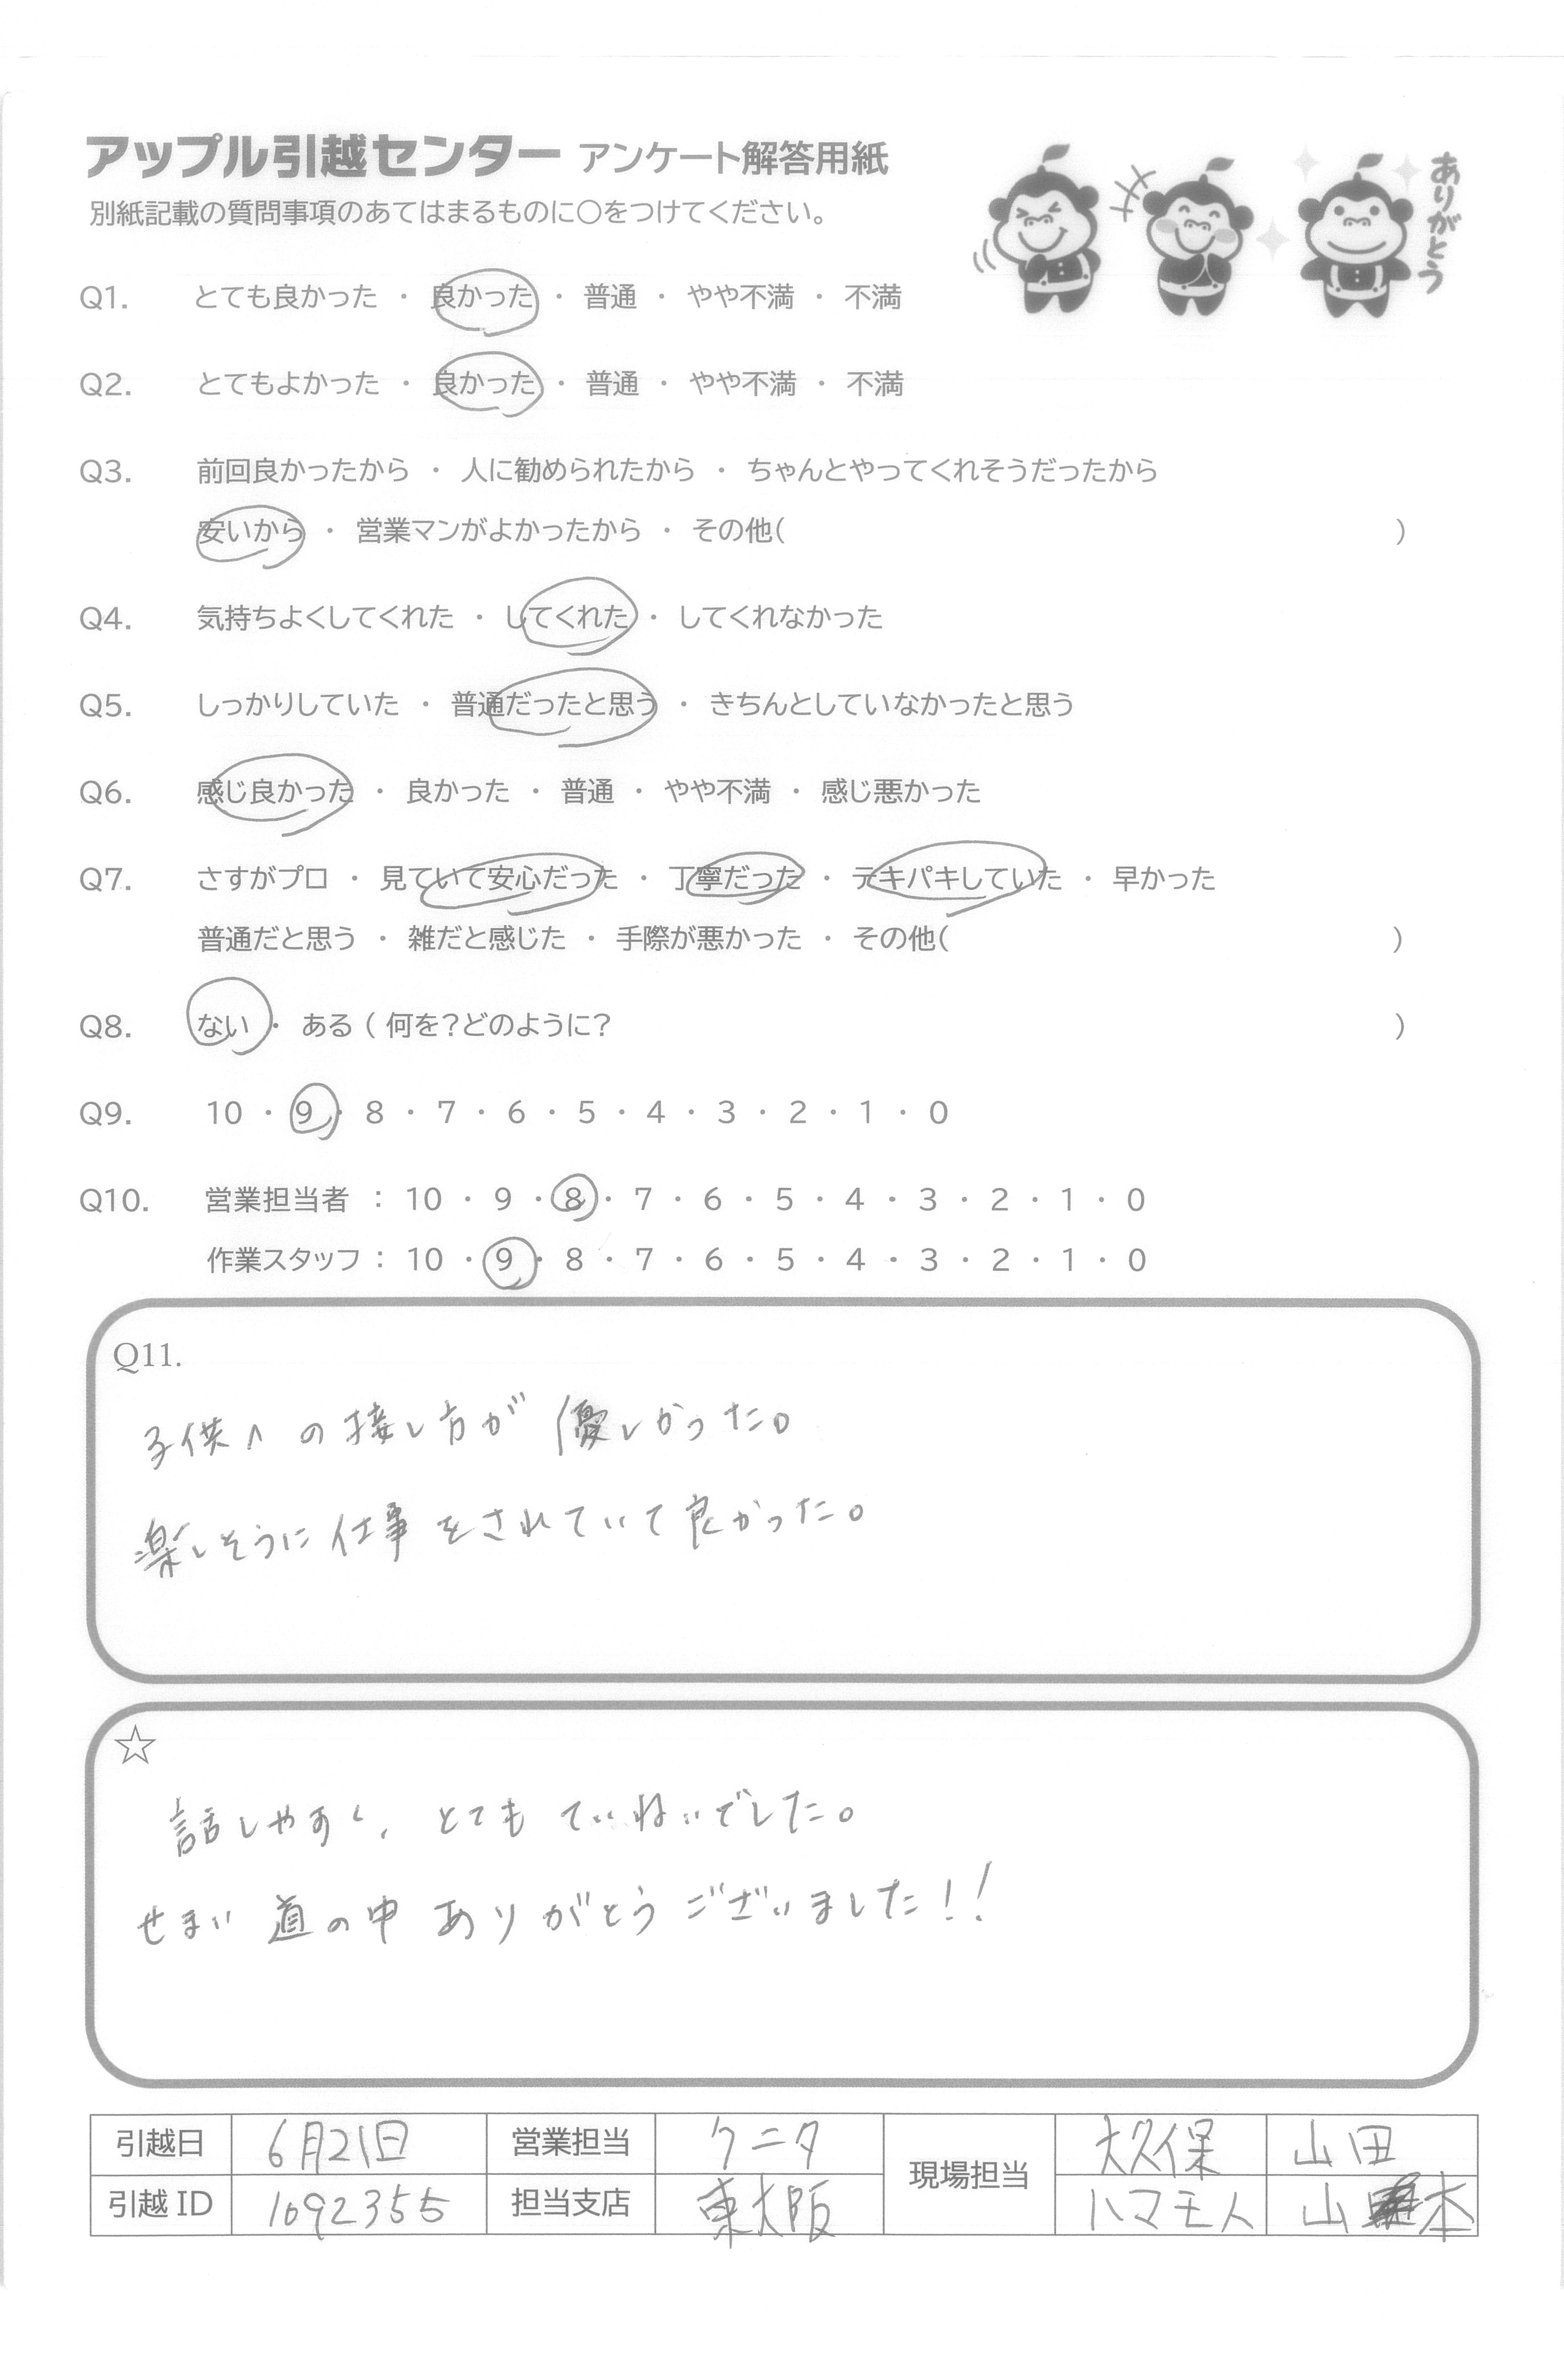 アップル引越センター アンケート解答用紙
別紙記載の質問事項のあてはまるものに〇をつけてください。
ありがとう
Q1. とても良かった ・ 良かった ・ 普通 ・ やや不満 ・ 不満
Q2. とてもよかった ・ 良かった ・ 普通 ・ やや不満 ・ 不満
Q3. 前回良かったから ・ 人に勧められたから ・ ちゃんとやってくれそうだったから
安いから ・ 営業マンがよかったから ・ その他( )
Q4. 気持ちよくしてくれた ・ してくれた ・ してくれなかった
Q5. しっかりしていた ・ 普通だったと思う ・ きちんとしていなかったと思う
Q6. 感じ良かった ・ 良かった ・ 普通 ・ やや不満 ・ 感じ悪かった
Q7. さすがプロ ・ 見ていて安心だった ・ 丁寧だった ・ テキパキしていた ・ 早かった
普通だと思う ・ 雑だと感じた ・ 手際が悪かった ・ その他( )
Q8. ない ・ ある ( 何を?どのように? )
Q9. 10 ・ 9 ・ 8 ・ 7 ・ 6 ・ 5 ・ 4 ・ 3 ・ 2 ・ 1 ・ 0
Q10. 営業担当者 : 10 ・ 9 ・ 8 ・ 7 ・ 6 ・ 5 ・ 4 ・ 3 ・ 2 ・ 1 ・ 0
作業スタッフ : 10 ・ 9 ・ 8 ・ 7 ・ 6 ・ 5 ・ 4 ・ 3 ・ 2 ・ 1 ・ 0
Q11.
子供への接し方が優しかった。
楽しそうに仕事をされていて良かった。
☆
話しやすく、とてもていねいでした。
せまい道の中ありがとうございました!!
引越日 6月21日 営業担当 クニタ 現場担当 大久保 山田
引越ID 1692355 担当支店 東大阪 ハマモト 山本